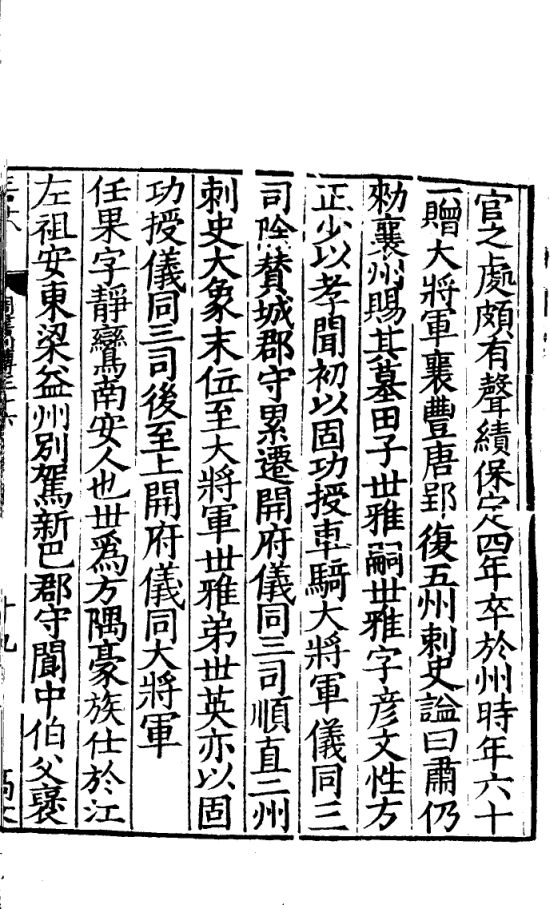 官之處頗有聲績保定四年卒於州時年六十
一贈大將軍襄豐唐郢復五州刺史謚曰肅仍
勑襄州賜其墓田子世雅嗣世雅字彦文性方
正少以孝聞初以固功授車騎大將軍儀同三
司除賛城郡守累遷開府儀同三司順直二州
刺史大象末位至大將軍世雅弟世英亦以固
功授儀同三司後至上開府儀同大將軍
任果字靜鸞南安人也世爲方隅豪族仕於江
左祖安東梁益州别駕新巴郡守閬中伯父褒